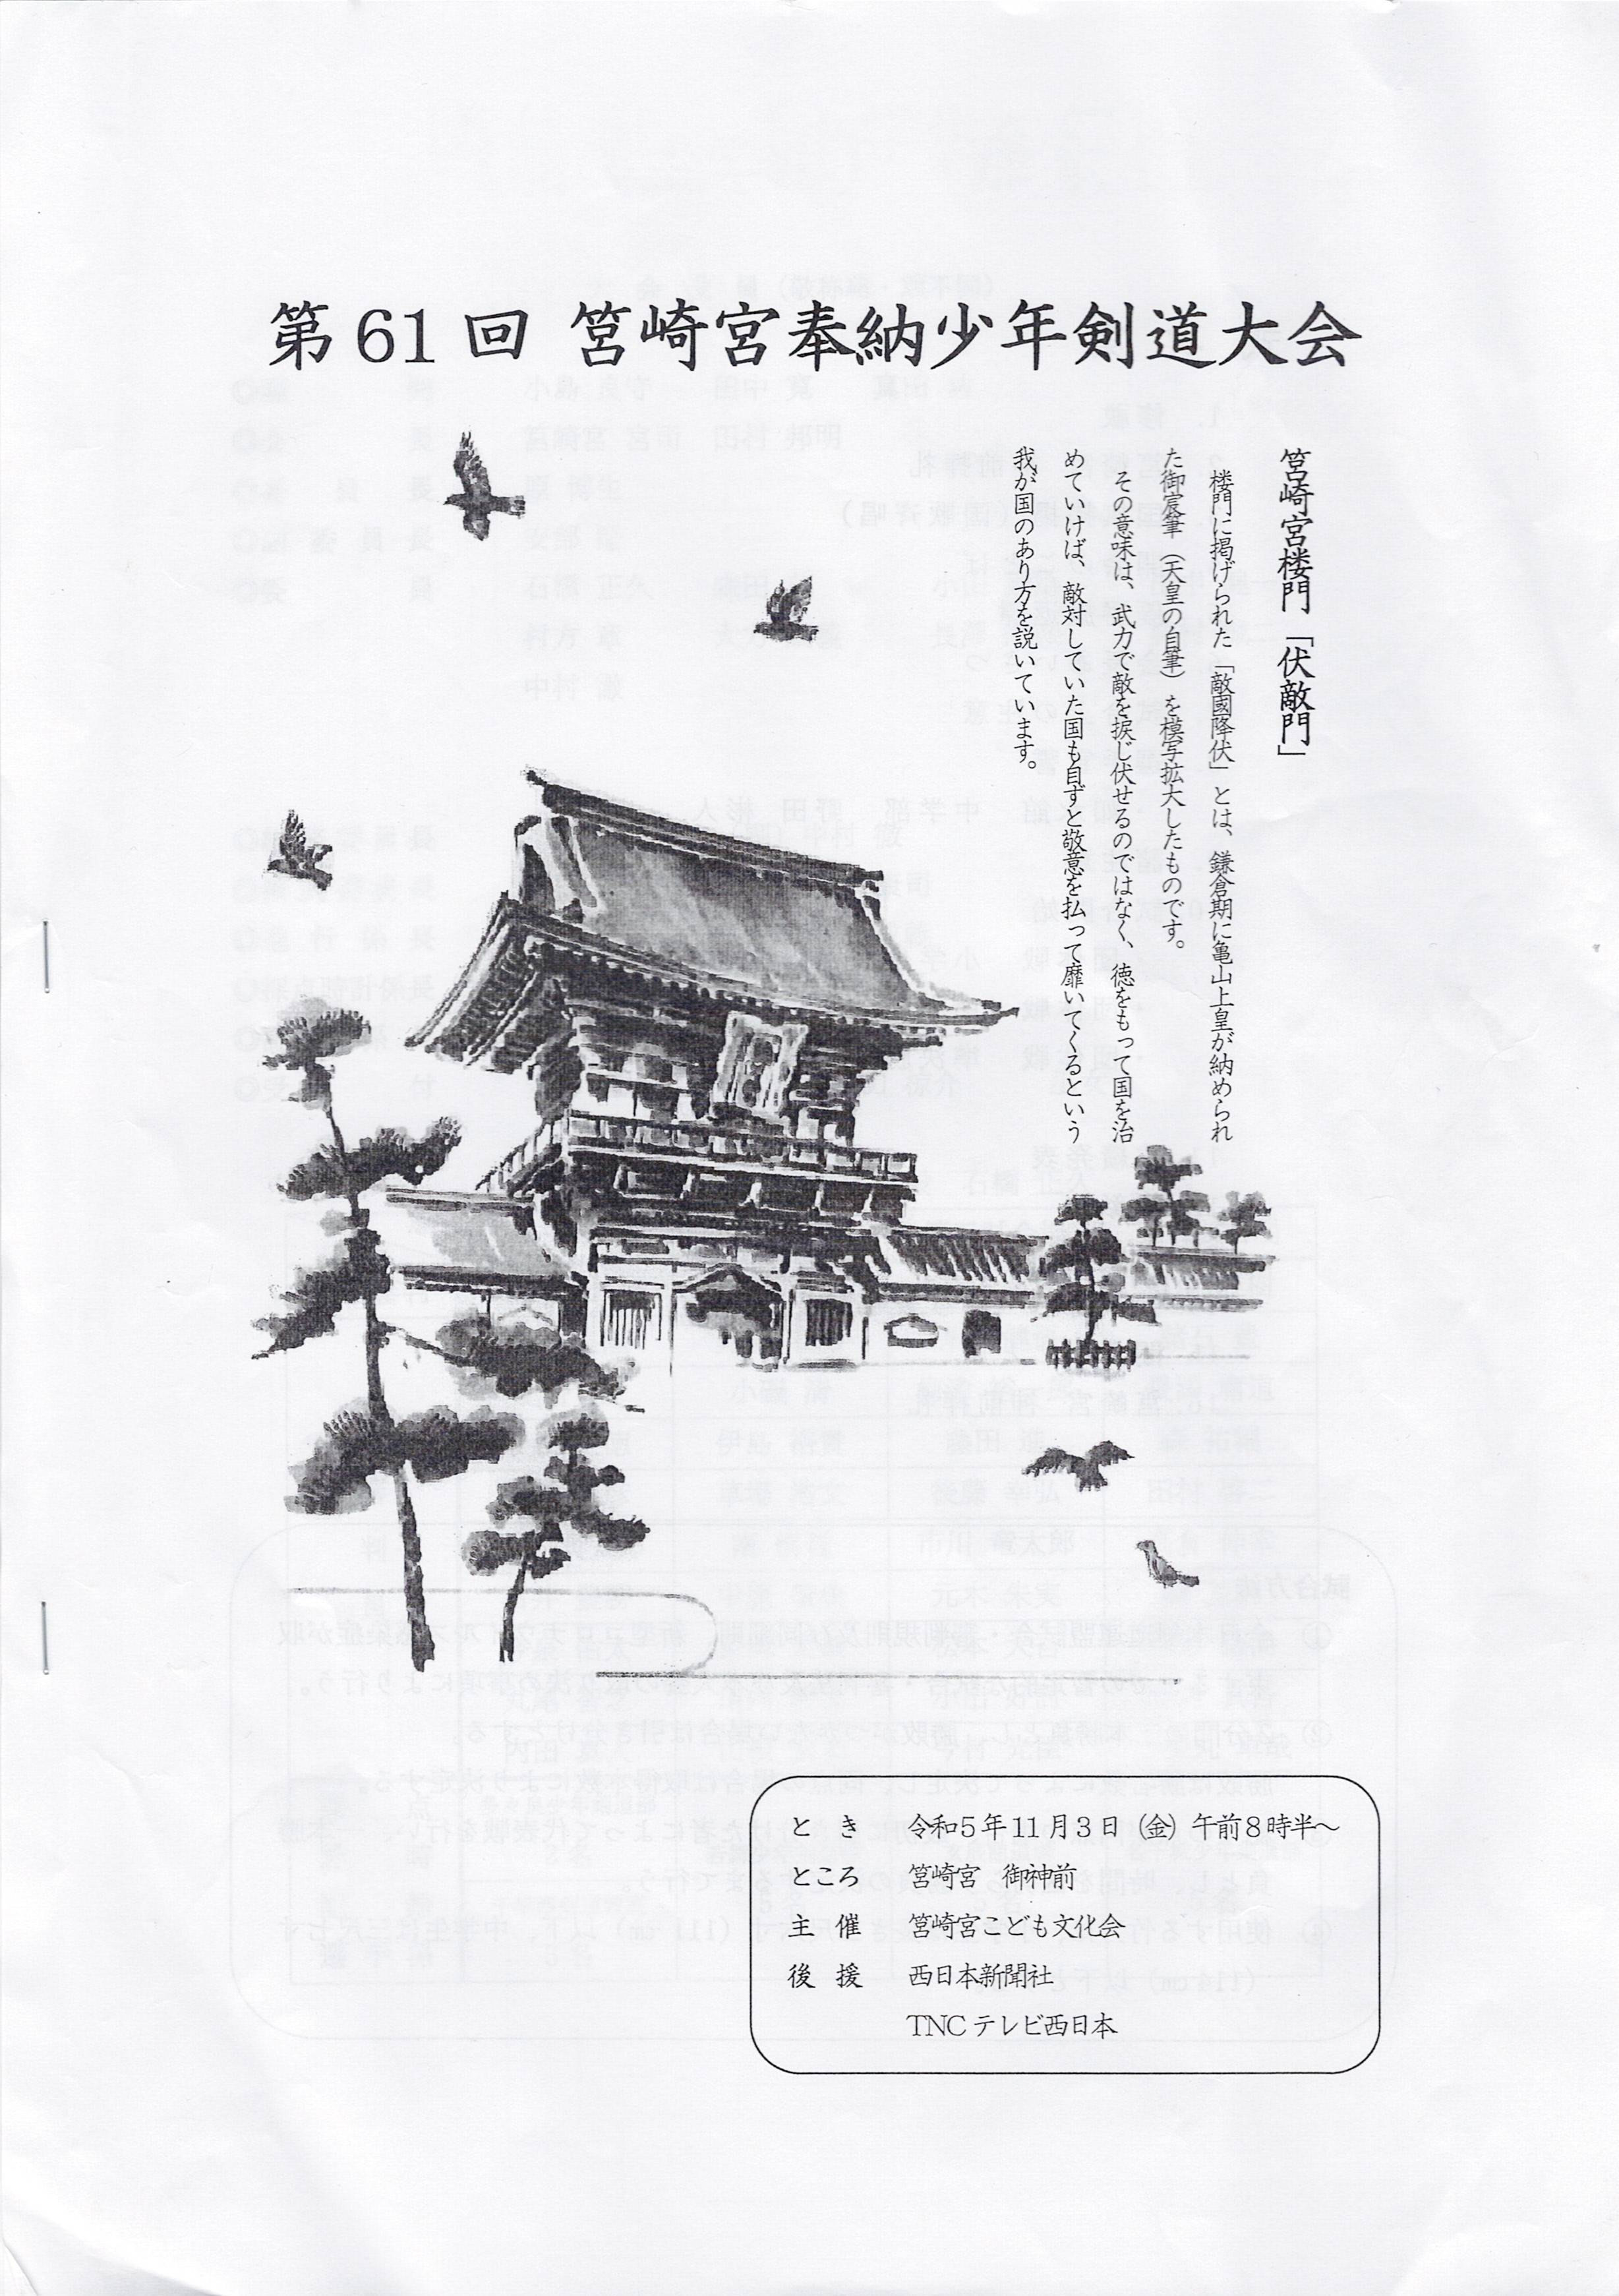 第61回 筥崎宮奉納少年剣道大会
筥崎宮楼門「伏敵門」
楼門に掲げられた「敵國降伏」とは、鎌倉期に亀山上皇が納められ
た御宸筆（天皇の自筆）を模写拡大したものです。
その意味は、武力で敵を捩じ伏せるのではなく、徳をもって国を治
めていけば、敵対していた国も自ずと敬意を払って靡いてくるという
我が国のあり方を説いています。
とき 令和5年11月3日（金）午前8時半～
ところ 筥崎宮 御神前
主催 筥崎宮こども文化会
後援 西日本新聞社
TNCテレビ西日本